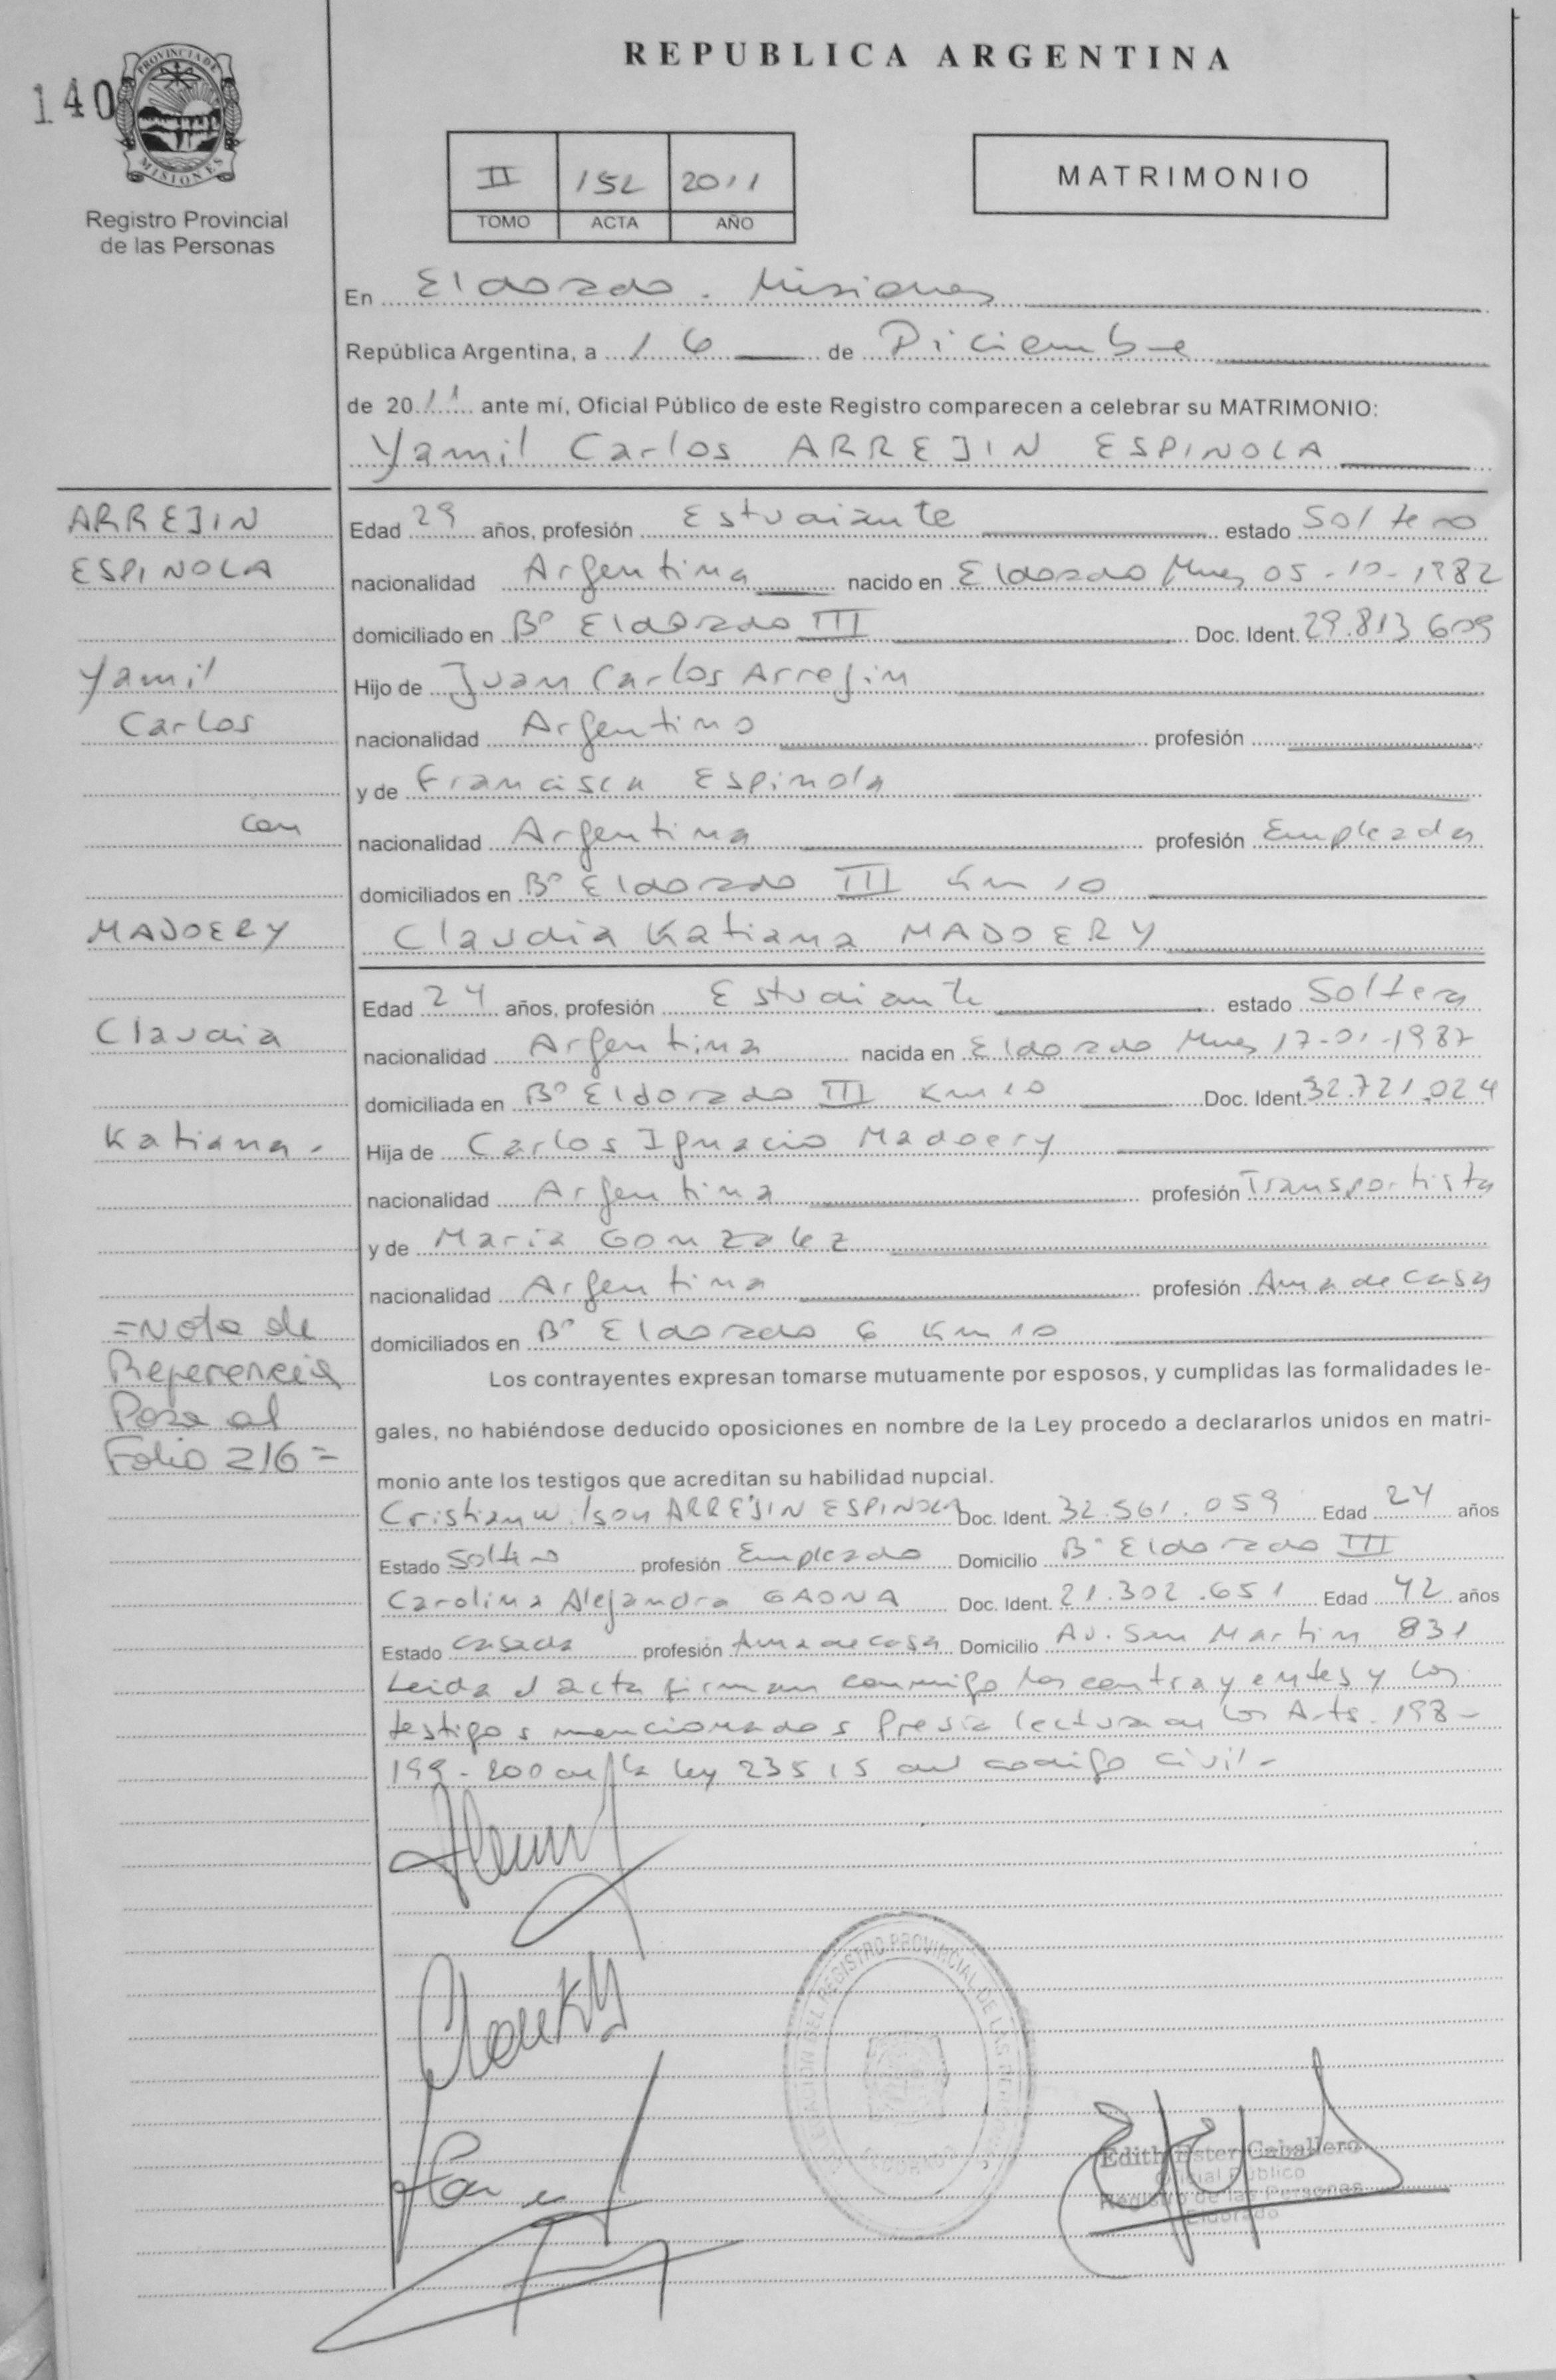 140
PROVINCIA DE
MISIONES
Registro Provincial
de las Personas
REPUBLICA ARGENTINA
II 152 2011
TOMO ACTA AÑO
MATRIMONIO
En Eldorado. Misiones
República Argentina, a 16 de Diciembre
de 2011 ante mí, Oficial Público de este Registro comparecen a celebrar su MATRIMONIO:
Yamil Carlos ARREJIN ESPINOLA
ARREJIN
ESPINOLA
Yamil
Carlos
con
MADOERY
Claudia
Katiana.
=Nota de
Referencia
Pasa al
Folio 216=
Edad 29 años, profesión Estudiante estado Soltero
nacionalidad Argentina nacido en Eldorado Mnes 05-10-1982
domiciliado en Bº Eldorado III Doc. Ident. 29.813.609
Hijo de Juan Carlos Arrejin
nacionalidad Argentino profesión
y de Francisca Espinola
nacionalidad Argentina profesión Empleada
domiciliados en Bº Eldorado III Km 10
Claudia Katiana MADOERY
Edad 24 años, profesión Estudiante estado Soltera
nacionalidad Argentina nacida en Eldorado Mnes 17-01-1987
domiciliada en Bº Eldorado III Km 10 Doc. Ident. 32.721.024
Hija de Carlos Ignacio Madoery
nacionalidad Argentina profesión Transportista
y de Maria Gonzalez
nacionalidad Argentina profesión Ama de casa
domiciliados en Bº Eldorado 6 Km 10
Los contrayentes expresan tomarse mutuamente por esposos, y cumplidas las formalidades le-
gales, no habiéndose deducido oposiciones en nombre de la Ley procedo a declararlos unidos en matri-
monio ante los testigos que acreditan su habilidad nupcial.
Cristian Wilson ARREJIN ESPINOLA Doc. Ident. 32.561.059 Edad 24 años
Estado Soltero profesión Empleado Domicilio Bº Eldorado III
Carolina Alejandra GAONA Doc. Ident. 21.302.651 Edad 42 años
Estado casada profesión Ama de casa Domicilio Av. San Martin 831
Leida el acta firman conmigo los contrayentes y los
testigos mencionados Previa lectura de los Arts. 198-
199-200 de la ley 23515 del codigo civil-
DELEGACION DEL REGISTRO PROVINCIAL DE LAS PERSONAS
ELDORADO
Edith Ester Caballero
Oficial Público
Registro de las Personas
Eldorado